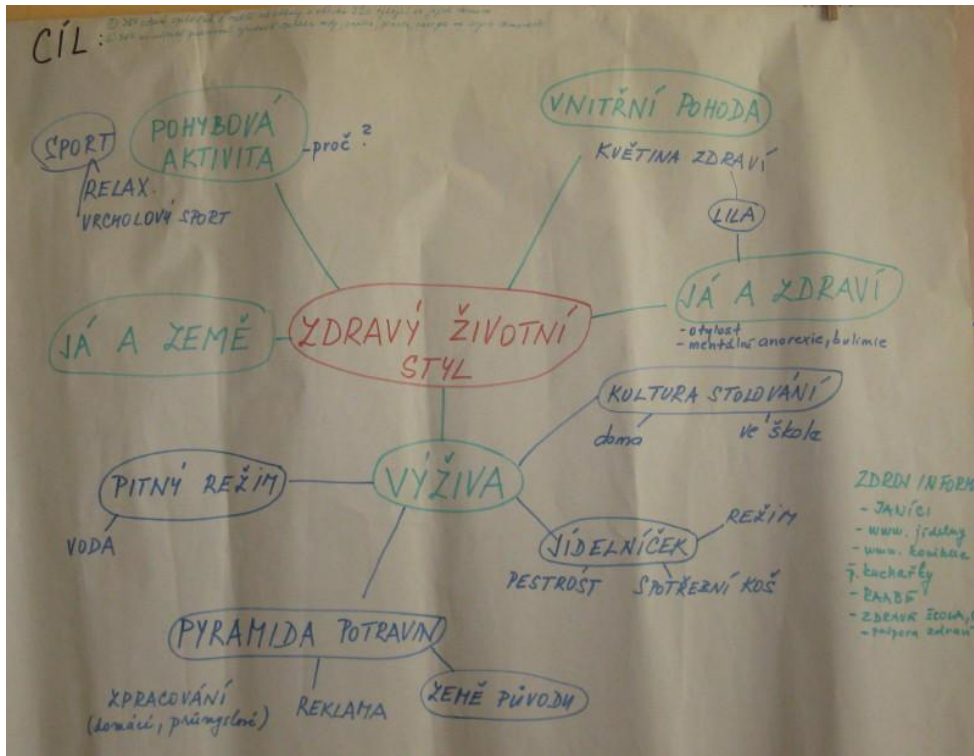 CÍL:
POHYBOVÁ
AKTIVITA
-proč?
SPORT
RELAX
VRCHOLOVÝ SPORT
VNITŘNÍ POHODA
KVĚTINA ZDRAVÍ
LILA
JÁ A ZDRAVÍ
- otylost
- mentální anorexie, bulimie
JÁ A ZEMĚ
ZDRAVÝ ŽIVOTNÍ
STYL
KULTURA STOLOVÁNÍ
doma
ve škole
VÝŽIVA
PITNÝ REŽIM
VODA
JÍDELNÍČEK
REŽIM
PESTROST
SPOTŘEBNÍ KOŠ
PYRAMIDA POTRAVIN
ZPRACOVÁNÍ
(domácí, průmyslové)
REKLAMA
ZEMĚ PŮVODU
ZDROJ INFORM
- JANÍCI
- www. jídelny
- www.
kuchařky
- RAABE
- ZDRAVÁ ŠKOLA,
- podpora zdraví